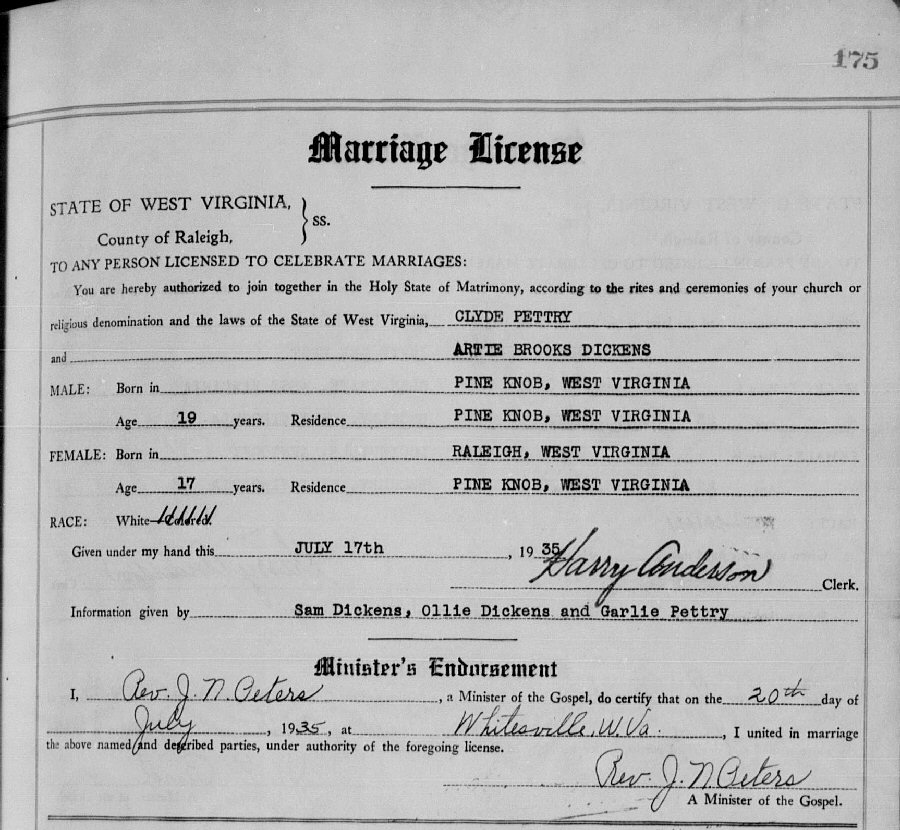 175
Marriage License
STATE OF WEST VIRGINIA,
County of Raleigh, } ss.
TO ANY PERSON LICENSED TO CELEBRATE MARRIAGES:
You are hereby authorized to join together in the Holy State of Matrimony, according to the rites and ceremonies of your church or
religious denomination and the laws of the State of West Virginia, CLYDE PETTRY
and ARTIE BROOKS DICKENS
MALE: Born in PINE KNOB, WEST VIRGINIA
Age 19 years. Residence PINE KNOB, WEST VIRGINIA
FEMALE: Born in RALEIGH, WEST VIRGINIA
Age 17 years. Residence PINE KNOB, WEST VIRGINIA
RACE: White—Colored.
Given under my hand this JULY 17th, 1935
Harry Anderson Clerk.
Information given by Sam Dickens, Ollie Dickens and Garlie Pettry
Minister's Endorsement
I, Rev. J. N Peters, a Minister of the Gospel, do certify that on the 20th day of
July, 1935, at Whitesville, W.Va., I united in marriage
the above named and described parties, under authority of the foregoing license.
Rev. J. N Peters
A Minister of the Gospel.